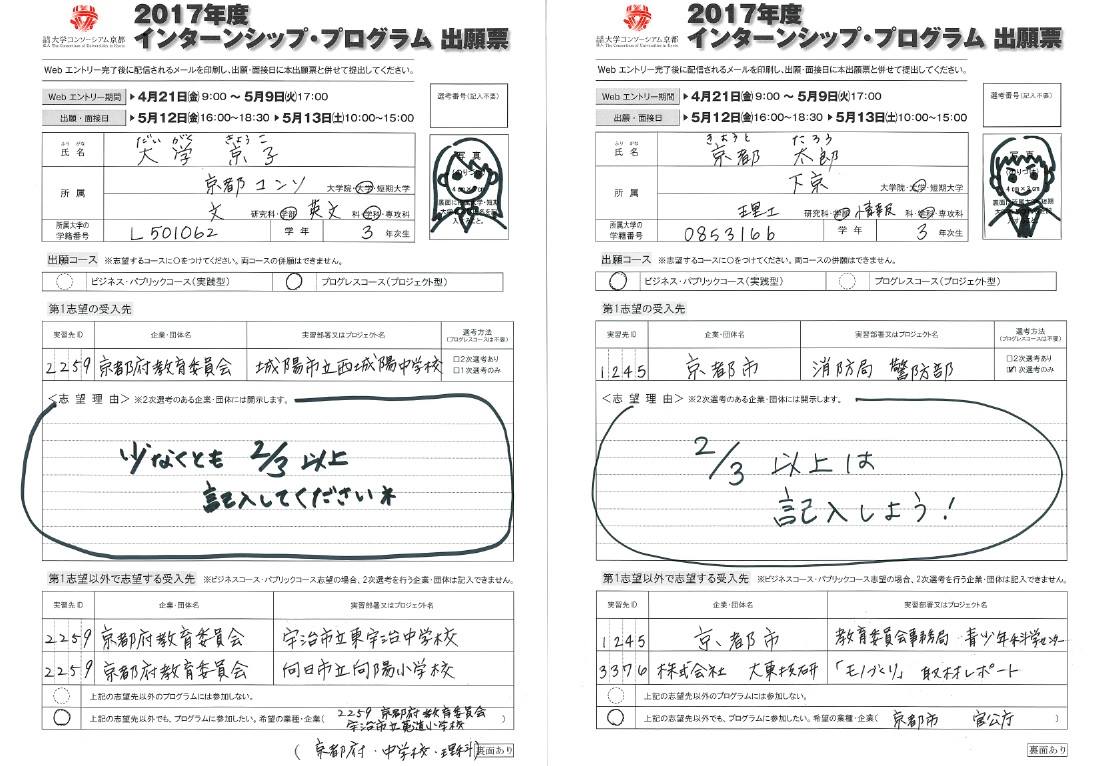 大学コンソーシアム京都
2017年度
インターンシップ・プログラム 出願票
Webエントリー完了後に配信されるメールを印刷し、出願・面接日に本出願票と併せて提出してください。
Webエントリー期間 ▶4月21日(金)9:00 ～ 5月9日(火)17:00
出願・面接日 ▶5月12日(金)16:00～18:30 ▶5月13日(土)10:00～15:00
選考番号(記入不要)
ふりがな だいがく きょうこ
氏名 大学 京子
写真
所属 京都コンソ 大学院・大学・短期大学
文 研究科・学部 英文 科・学科・専攻科
所属大学の
学籍番号 L501062 学年 3 年次生
出願コース ※志望するコースに○をつけてください。両コースの併願はできません。
ビジネス・パブリックコース(実践型) プログレスコース(プロジェクト型)
第1志望の受入先
実習先ID 企業・団体名 実習部署又はプロジェクト名 選考方法
(プログレスコースは不要)
2259 京都府教育委員会 城陽市立西城陽中学校 □2次選考あり
□1次選考のみ
＜志望理由＞ ※2次選考のある企業・団体には開示します。
少なくとも 2/3 以上
記入してくださいネ
第1志望以外で志望する受入先 ※ビジネスコース・パブリックコース志望の場合、2次選考を行う企業・団体は記入できません。
実習先ID 企業・団体名 実習部署又はプロジェクト名
2259 京都府教育委員会 宇治市立東宇治中学校
2259 京都府教育委員会 向日市立向陽小学校
上記の志望先以外のプログラムには参加しない。
上記の志望先以外でも、プログラムに参加したい。希望の業種・企業( 2259 京都府教育委員会
宇治市立菟道小学校 )
(京都府・中学校・理科) 裏面あり
大学コンソーシアム京都
2017年度
インターンシップ・プログラム 出願票
Webエントリー完了後に配信されるメールを印刷し、出願・面接日に本出願票と併せて提出してください。
Webエントリー期間 ▶4月21日(金)9:00 ～ 5月9日(火)17:00
出願・面接日 ▶5月12日(金)16:00～18:30 ▶5月13日(土)10:00～15:00
選考番号(記入不要)
ふりがな きょうと たろう
氏名 京都 太郎
写真
所属 下京 大学院・大学・短期大学
理工 研究科・学部 情報 科・学科・専攻科
所属大学の
学籍番号 0853166 学年 3 年次生
出願コース ※志望するコースに○をつけてください。両コースの併願はできません。
ビジネス・パブリックコース(実践型) プログレスコース(プロジェクト型)
第1志望の受入先
実習先ID 企業・団体名 実習部署又はプロジェクト名 選考方法
(プログレスコースは不要)
1245 京都市 消防局 警防部 □2次選考あり
☑1次選考のみ
＜志望理由＞ ※2次選考のある企業・団体には開示します。
2/3 以上は
記入しよう！
第1志望以外で志望する受入先 ※ビジネスコース・パブリックコース志望の場合、2次選考を行う企業・団体は記入できません。
実習先ID 企業・団体名 実習部署又はプロジェクト名
1245 京都市 教育委員会事務局 青少年科学センター
3376 株式会社 大東技研 「モノづくり」取材レポート
上記の志望先以外のプログラムには参加しない。
上記の志望先以外でも、プログラムに参加したい。希望の業種・企業( 京都市 官公庁 )
裏面あり